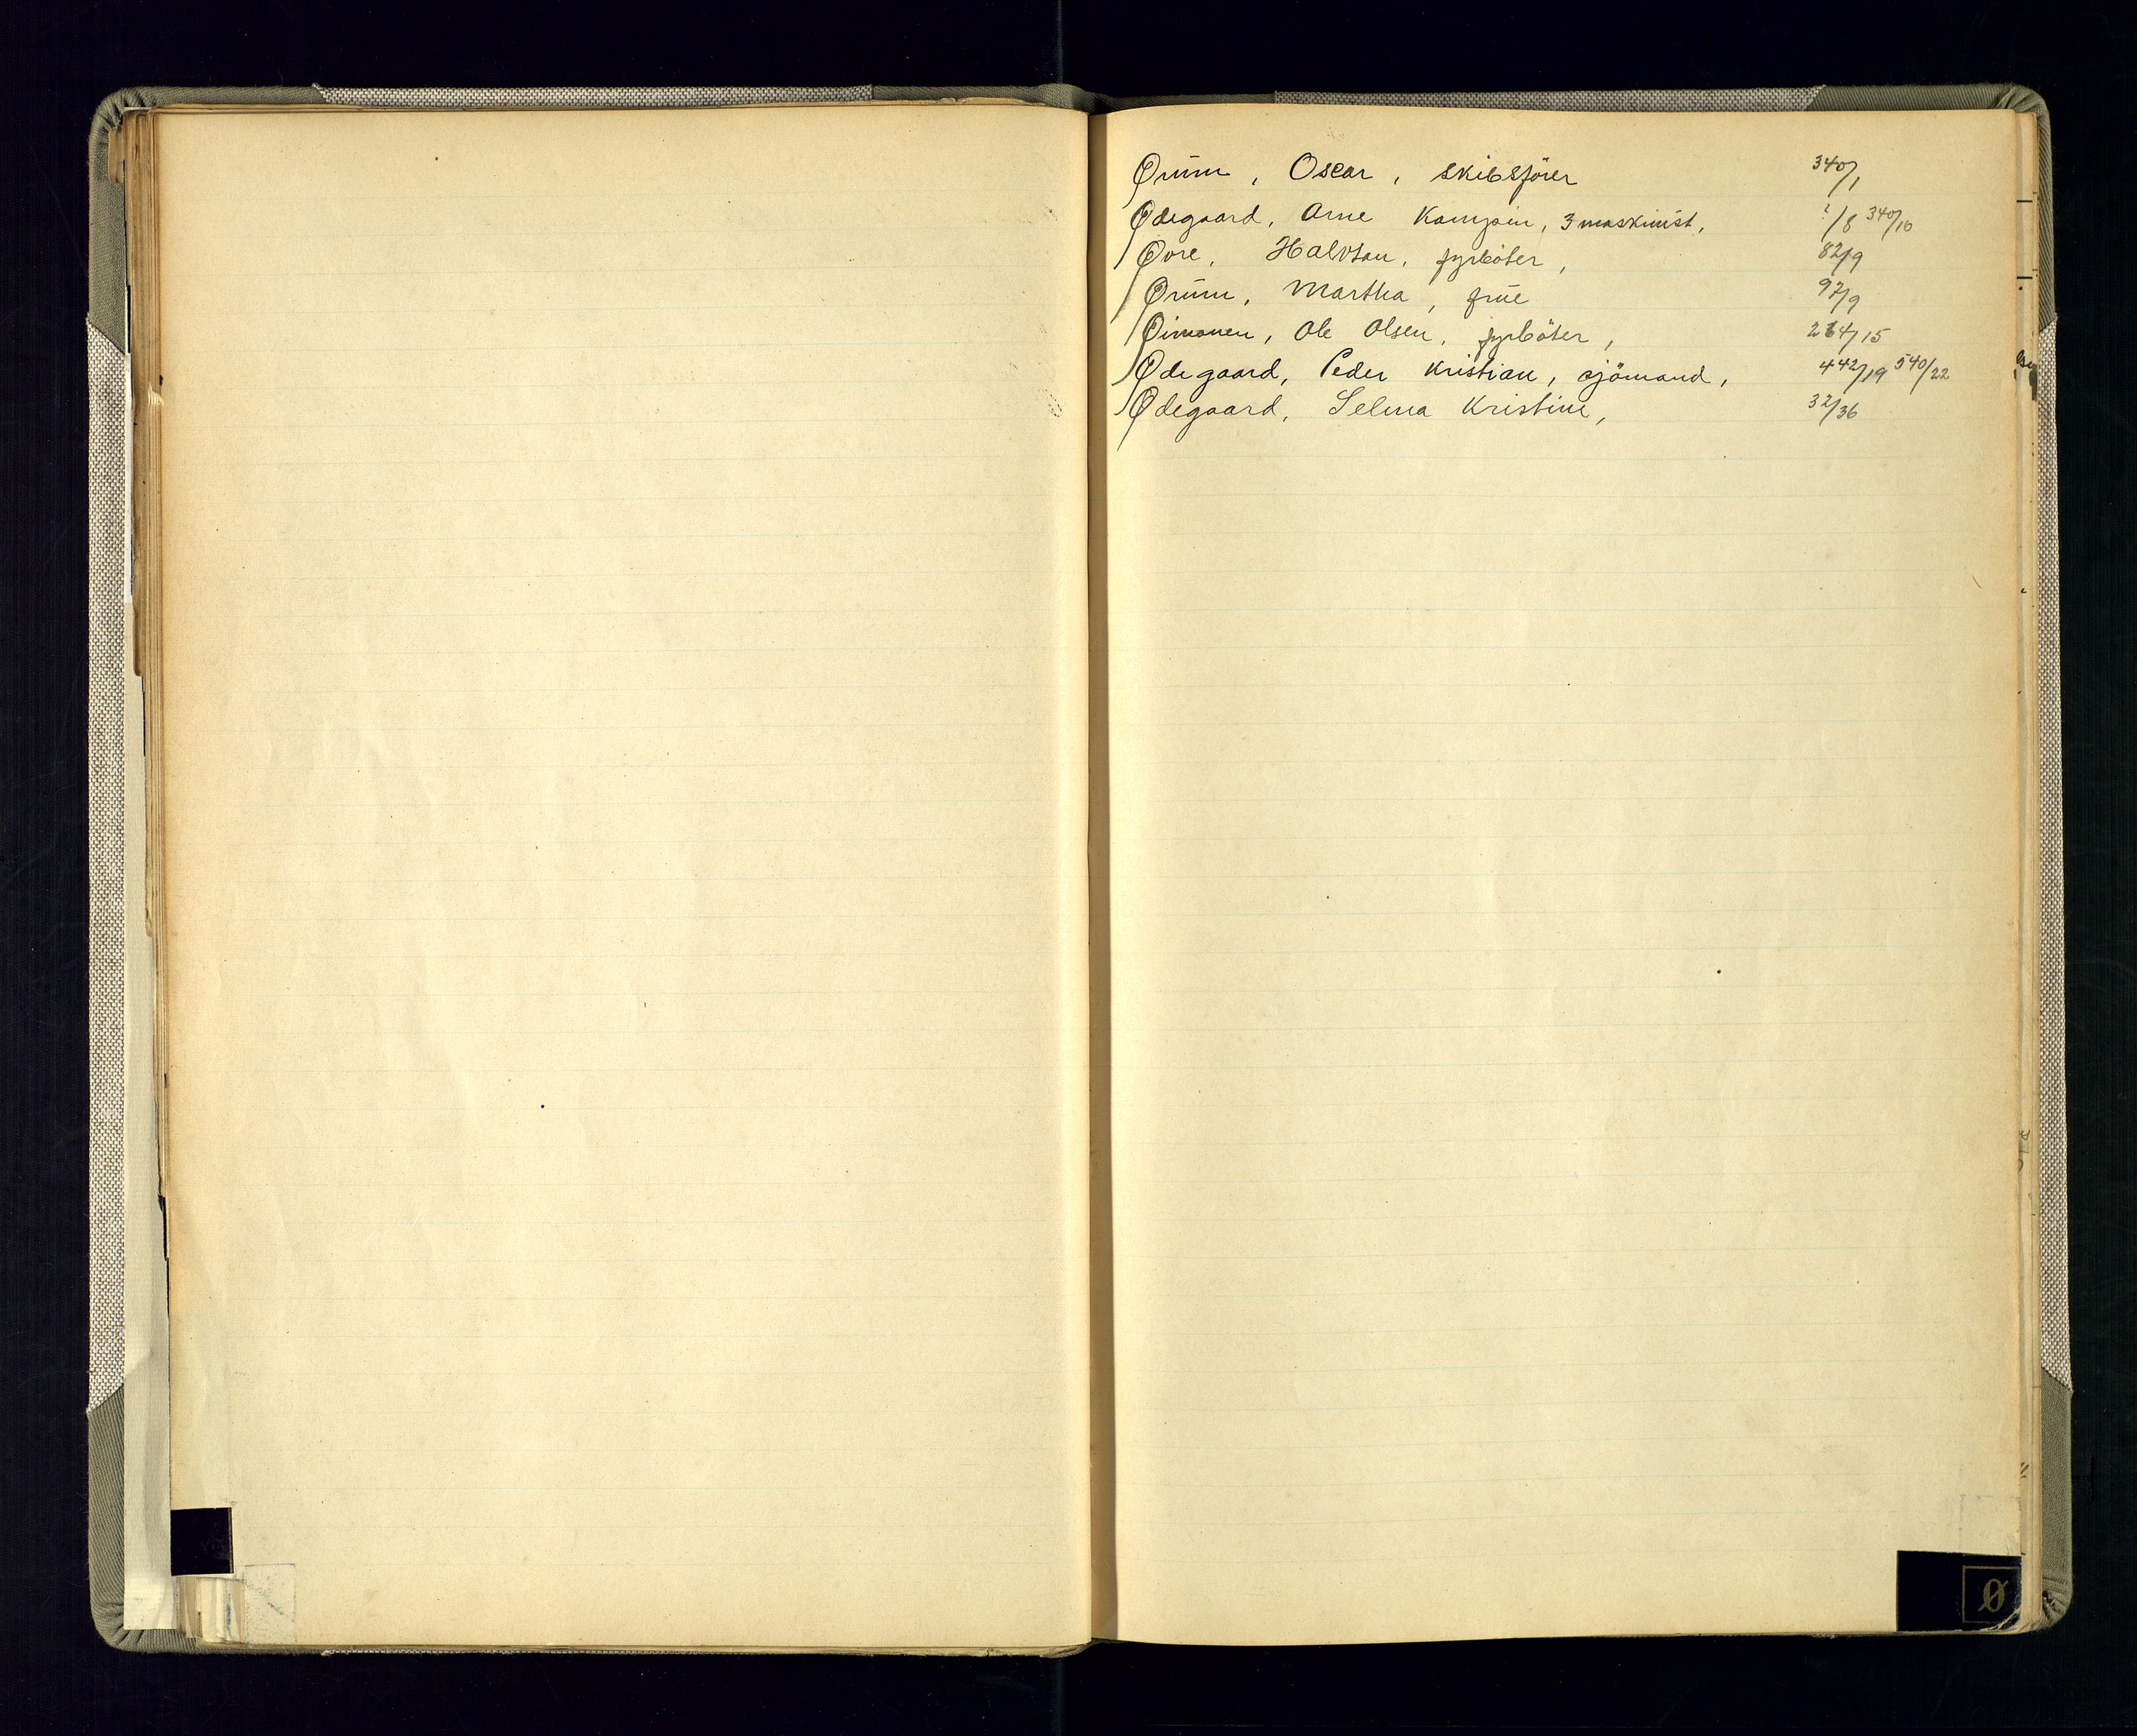 Ørum, Oscar, skibsfører 340/1
Ødegaard, Arne 3 maskinist, ?/8 340/10
Øore, Halvtan, fyrbøter, 82/9
Ørum, Martha, frue 97/9
Øimonen, Ole Olsen, fyrbøter, 264/15
Ødegaard, Peder Kristian, sjömand, 442/19 540/22
Ødegaard, Selma Kristine, 32/36
Ø